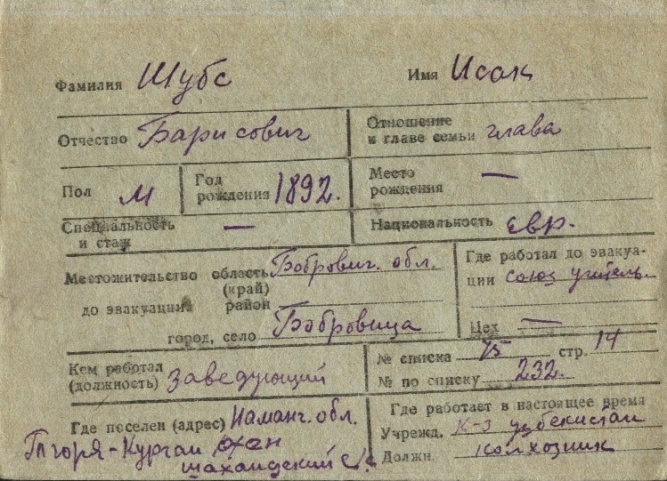 Фамилия Шубс Имя Исак
Отчество Барисович Отношение к главе семьи глава
Пол М Год рождения 1892. Место рождения —
Специальность и стаж — Национальность евр.
Местожительство до эвакуации область (край) Бобрович. обл.
район
город, село Бобровица
Где работал до эвакуа-
ции союз учитель.
Цех —
Кем работал (должность) заведующий
№ списка 75 стр. 14
№ по списку 232.
Где поселен (адрес) Наманг. обл.
Где работает в настоящее время
Учрежд. К-з узбекистан
Должн. колхозник